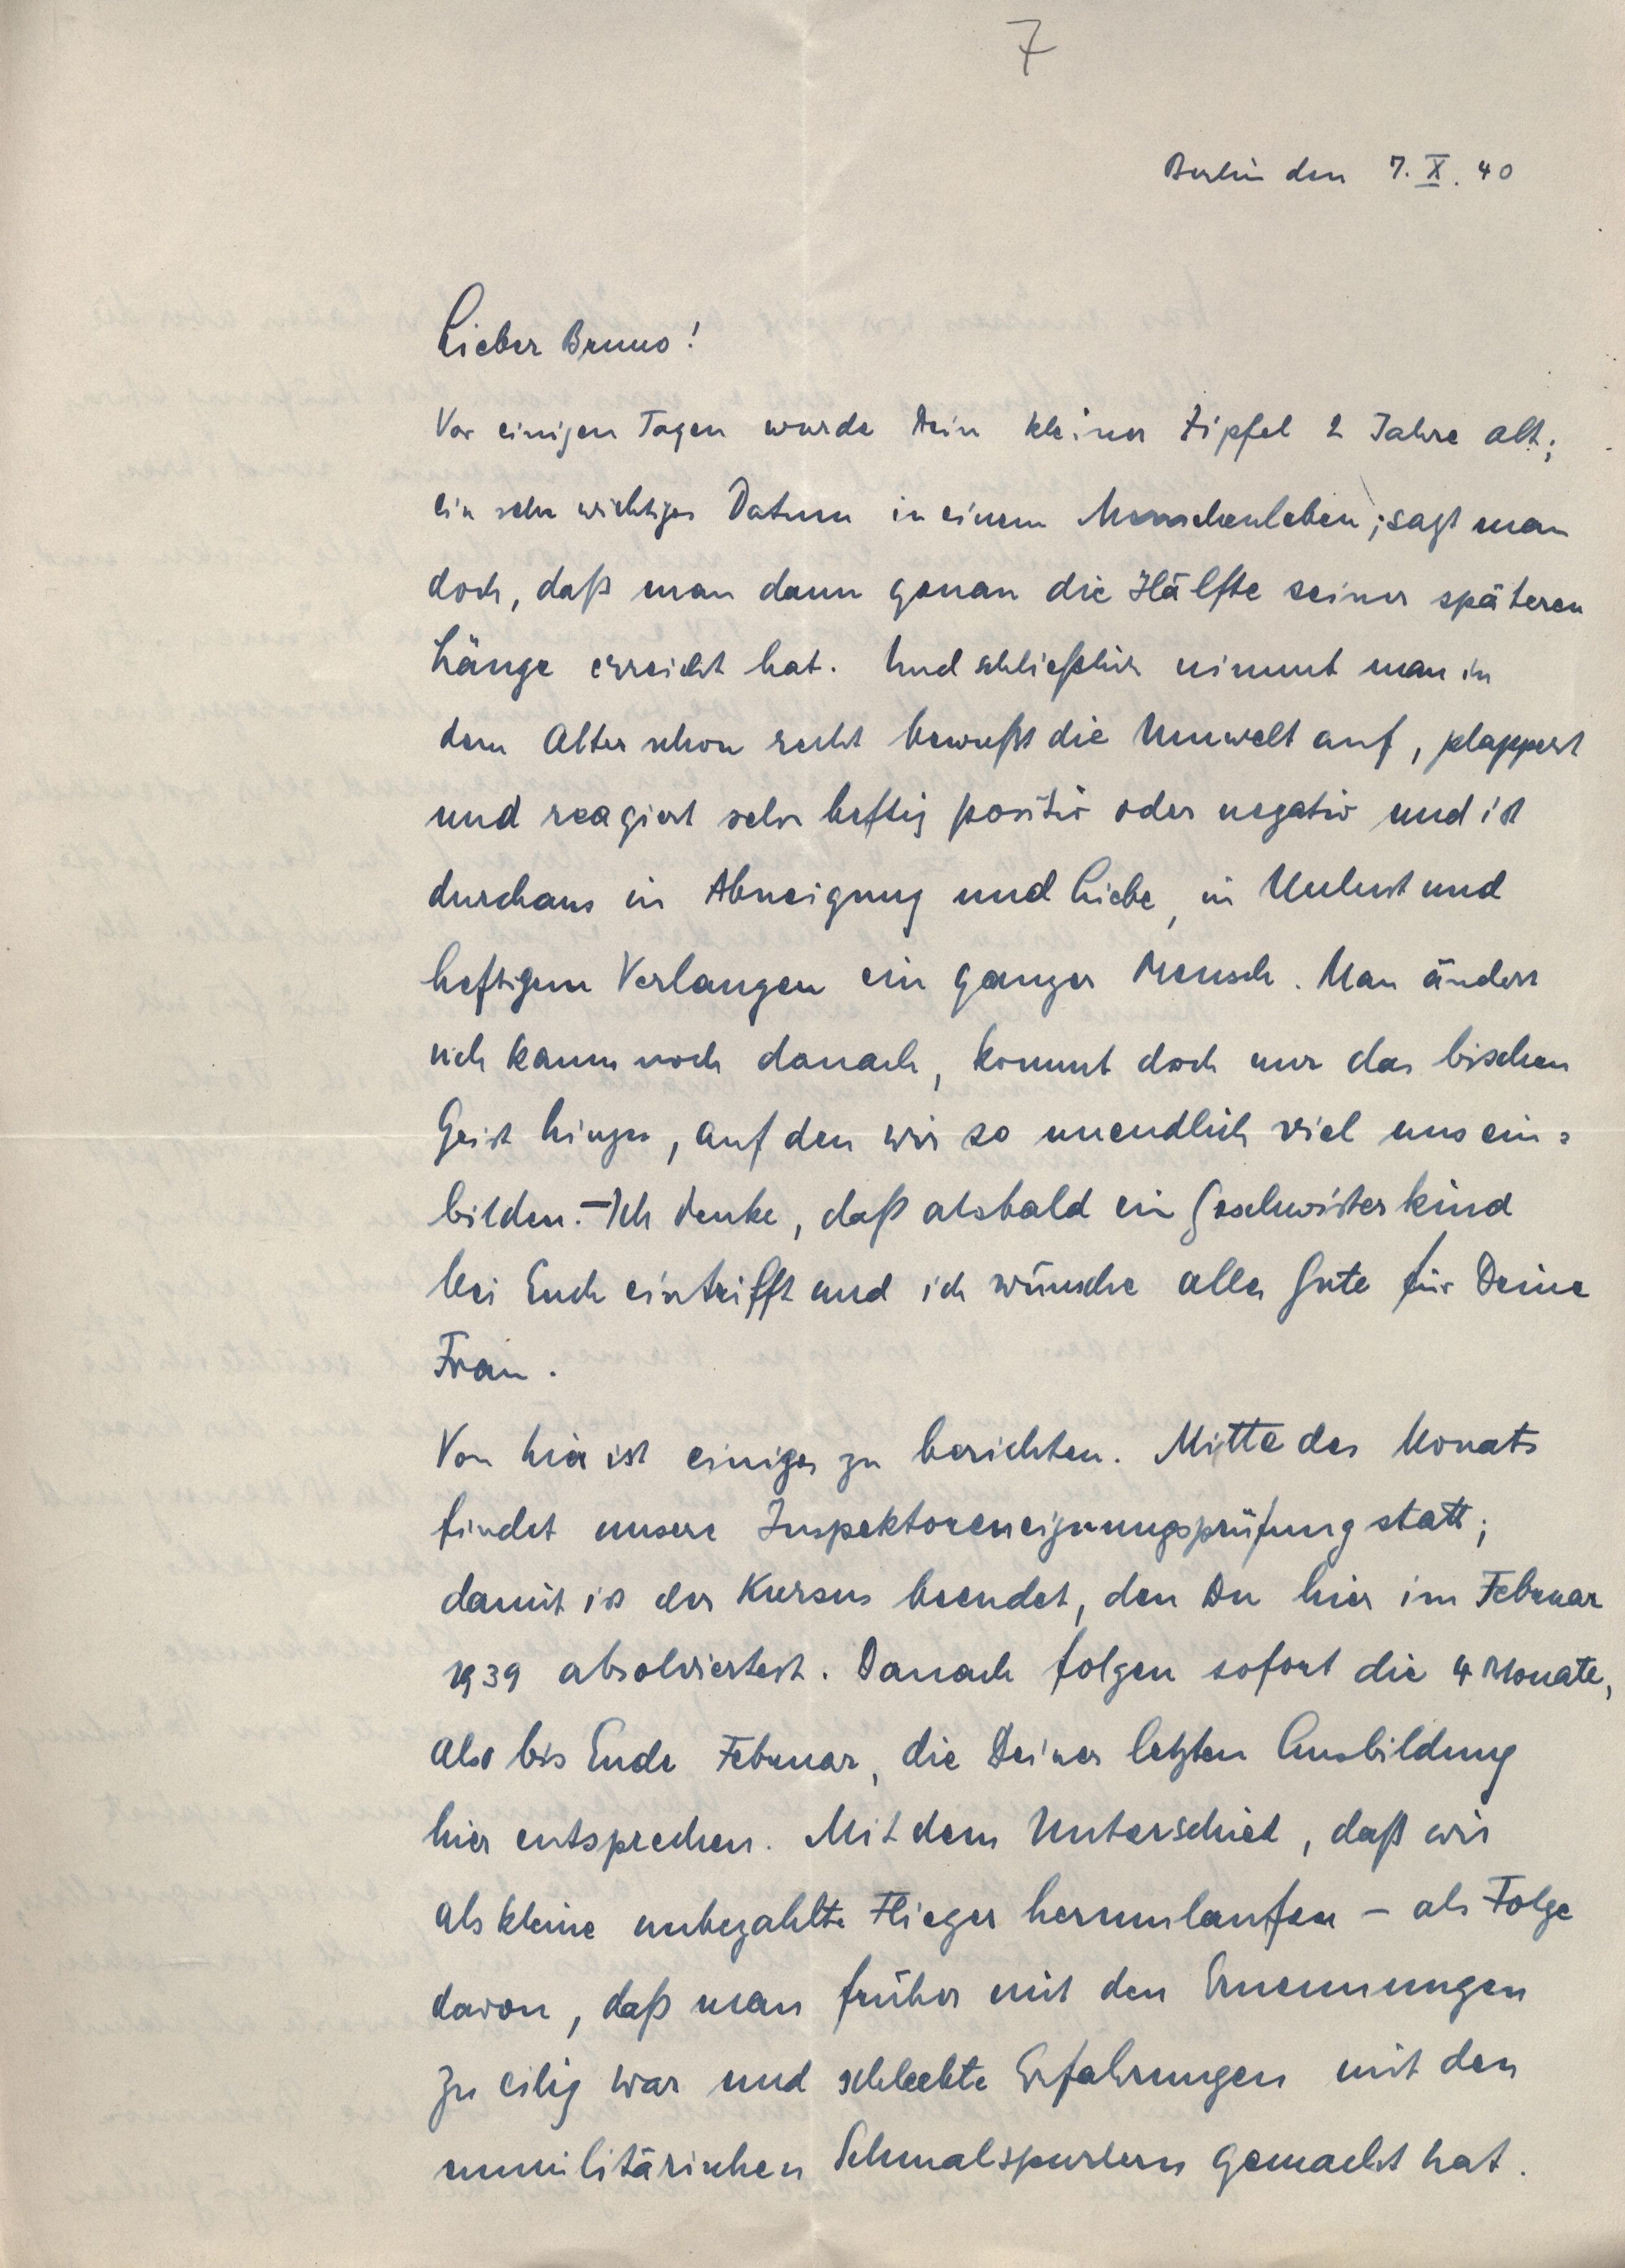 7
Berlin den 7. X. 40
Lieber Bruno!
Vor einigen Tagen wurde Dein kleiner Zipfel 2 Jahre alt;
ein sehr wichtiges Datum in einem Menschenleben; sagt man
doch, daß man dann genau die Hälfte seiner späteren
Länge erreicht hat. Und schließlich nimmt man in
dem Alter schon recht bewußt die Umwelt auf, plappert
und reagiert sehr heftig positiv oder negativ und ist
durchaus in Abneigung und Liebe, in Unlust und
heftigem Verlangen ein ganzer Mensch. Man ändert
sich kaum noch danach, kommt doch nur das bischen
Geist hinzu, auf den wir so unendlich viel uns ein=
bilden. – Ich denke, daß alsbald ein Geschwisterkind
bei Euch eintrifft und ich wünsche alles Gute für Deine
Frau.
Von hier ist einiges zu berichten. Mitte des Monats
findet unsere Inspektoreneignungsprüfung statt;
damit ist der Kursus beendet, den Du hier im Februar
1939 absolviertest. Danach folgen sofort die 4 Monate,
also bis Ende Februar, die Deiner letzten Ausbildung
hier entsprechen. Mit dem Unterschied, daß wir
als kleine unbezahlte Flieger herumlaufen – als Folge
davon, daß man früher mit den Ernennungen
zu eilig war und schlechte Erfahrungen mit den
unmilitärischen Schmalspurlern gemacht hat.